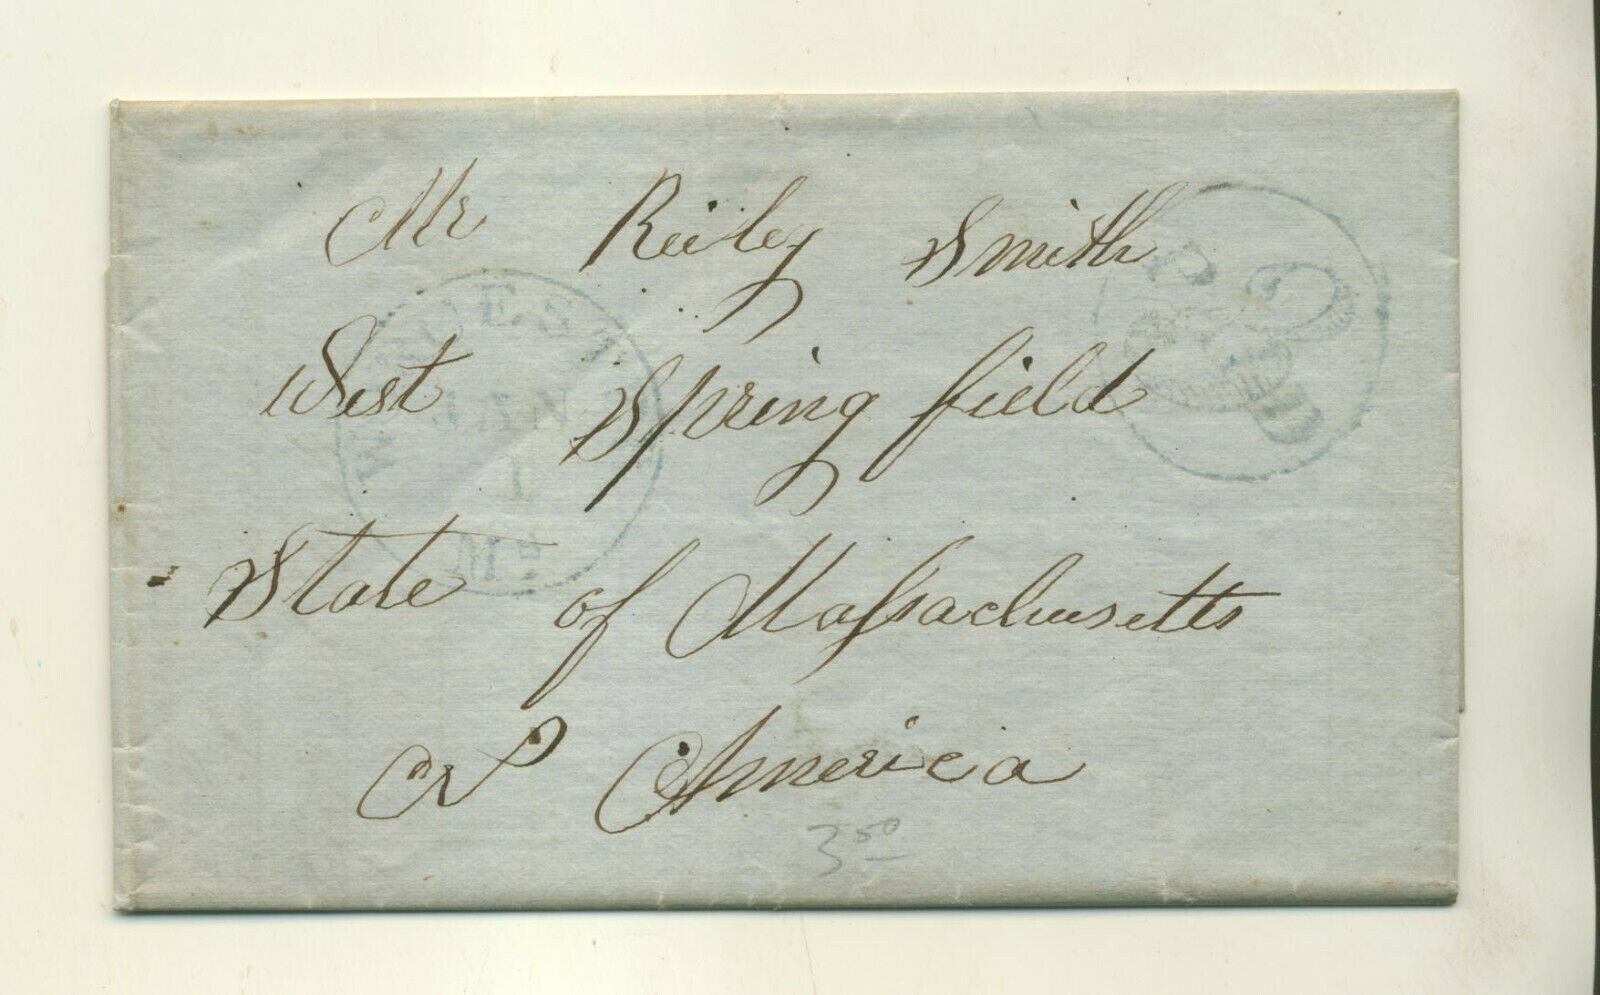 Mr Reiley Smith
West Spring field
State of Massachusetts
N America
3 50